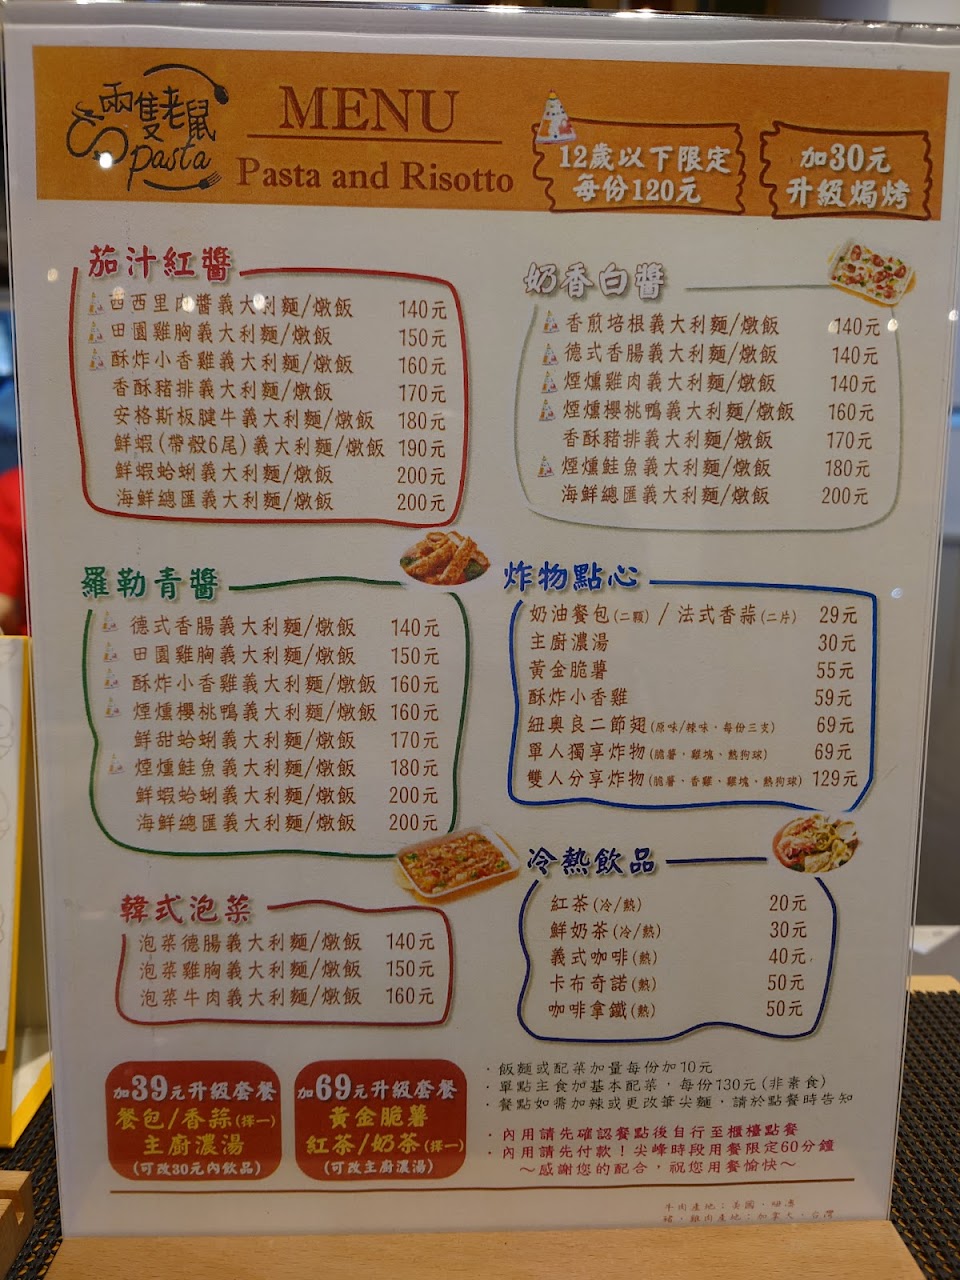 兩隻老鼠
pasta
MENU
Pasta and Risotto
12歲以下限定
每份120元
加30元
升級焗烤
茄汁紅醬
西西里肉醬義大利麵/燉飯 140元
田園雞胸義大利麵/燉飯 150元
酥炸小香雞義大利麵/燉飯 160元
香酥豬排義大利麵/燉飯 170元
安格斯板腱牛義大利麵/燉飯 180元
鮮蝦(帶殼6尾)義大利麵/燉飯 190元
鮮蝦蛤蜊義大利麵/燉飯 200元
海鮮總匯義大利麵/燉飯 200元
奶香白醬
香煎培根義大利麵/燉飯 140元
德式香腸義大利麵/燉飯 140元
煙燻雞肉義大利麵/燉飯 140元
煙燻櫻桃鴨義大利麵/燉飯 160元
香酥豬排義大利麵/燉飯 170元
煙燻鮭魚義大利麵/燉飯 180元
海鮮總匯義大利麵/燉飯 200元
羅勒青醬
德式香腸義大利麵/燉飯 140元
田園雞胸義大利麵/燉飯 150元
酥炸小香雞義大利麵/燉飯 160元
煙燻櫻桃鴨義大利麵/燉飯 160元
鮮甜蛤蜊義大利麵/燉飯 170元
煙燻鮭魚義大利麵/燉飯 180元
鮮蝦蛤蜊義大利麵/燉飯 200元
海鮮總匯義大利麵/燉飯 200元
炸物點心
奶油餐包(二顆) / 法式香蒜(二片) 29元
主廚濃湯 30元
黃金脆薯 55元
酥炸小香雞 59元
紐奧良二節翅(原味/辣味·每份三支) 69元
單人獨享炸物(脆薯·雞塊·熱狗球) 69元
雙人分享炸物(脆薯·香雞·雞塊·熱狗球) 129元
韓式泡菜
泡菜德腸義大利麵/燉飯 140元
泡菜雞胸義大利麵/燉飯 150元
泡菜牛肉義大利麵/燉飯 160元
冷熱飲品
紅茶(冷/熱) 20元
鮮奶茶(冷/熱) 30元
義式咖啡(熱) 40元
卡布奇諾(熱) 50元
咖啡拿鐵(熱) 50元
加39元升級套餐
餐包/香蒜(擇一)
主廚濃湯
(可改30元內飲品)
加69元升級套餐
黃金脆薯
紅茶/奶茶(擇一)
(可改主廚濃湯)
·飯麵或配菜加量每份加10元
·單點主食加基本配菜，每份130元(非素食)
·餐點如需加辣或更改筆尖麵，請於點餐時告知
·內用請先確認餐點後自行至櫃檯點餐
·內用請先付款！尖峰時段用餐限定60分鐘
～感謝您的配合，祝您用餐愉快～
牛肉產地：美國·紐澳
豬·雞肉產地：加拿大·台灣